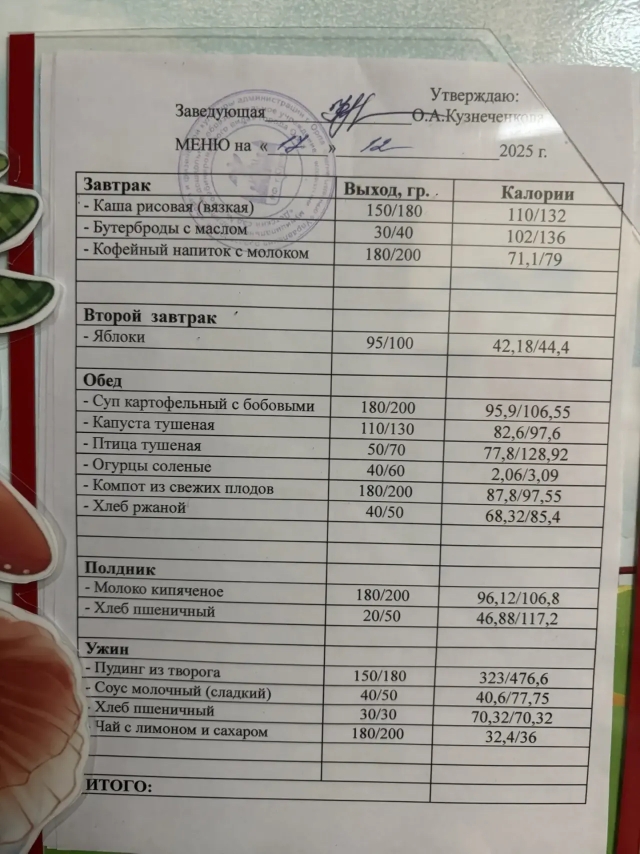 Утверждаю:
Заведующая О.А.Кузнеченкова
МЕНЮ на « 17 » 12 2025 г.
Завтрак Выход, гр. Калории
- Каша рисовая (вязкая) 150/180 110/132
- Бутерброды с маслом 30/40 102/136
- Кофейный напиток с молоком 180/200 71,1/79
Второй завтрак
- Яблоки 95/100 42,18/44,4
Обед
- Суп картофельный с бобовыми 180/200 95,9/106,55
- Капуста тушеная 110/130 82,6/97,6
- Птица тушеная 50/70 77,8/128,92
- Огурцы соленые 40/60 2,06/3,09
- Компот из свежих плодов 180/200 87,8/97,55
- Хлеб ржаной 40/50 68,32/85,4
Полдник
- Молоко кипяченое 180/200 96,12/106,8
- Хлеб пшеничный 20/50 46,88/117,2
Ужин
- Пудинг из творога 150/180 323/476,6
- Соус молочный (сладкий) 40/50 40,6/77,75
- Хлеб пшеничный 30/30 70,32/70,32
- Чай с лимоном и сахаром 180/200 32,4/36
ИТОГО: